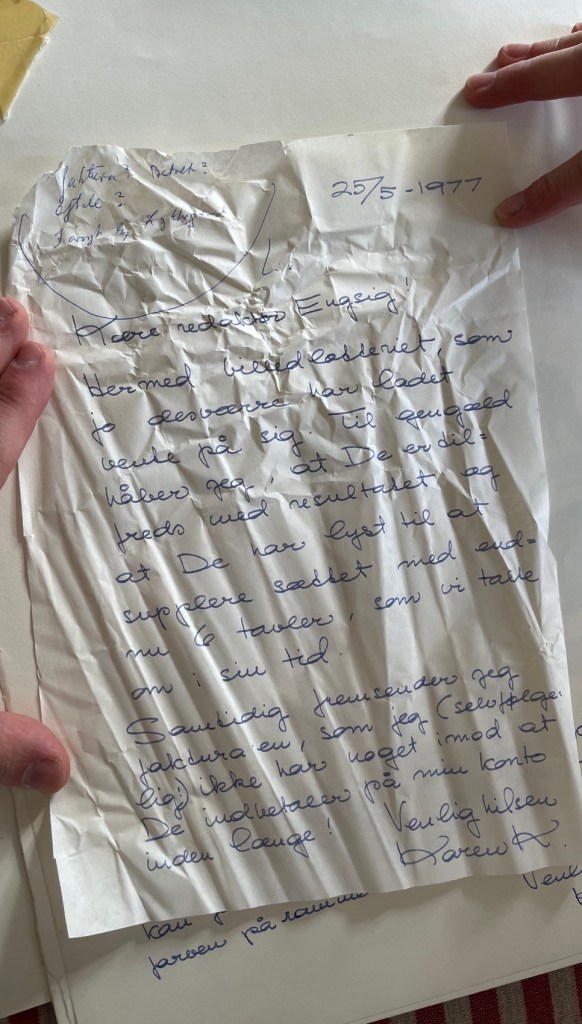 faktura? Betalt?
25/5-1977
Kære redaktør Engsig!
Hermed billedlotteriet, som
jo desværre har ladet
vente på sig. Til gengæld
håber jeg, at De er til=
freds med resultatet og
at De har lyst til at
supplere sættet med end=
nu 6 tavler, som vi talte
om i sin tid.
Samtidig fremsender jeg
faktura'en, som jeg (selvfølge-
lig) ikke har noget imod at
De indbetaler på min konto
inden længe! Venlig hilsen
Karen K.
kan
farven på
Venl